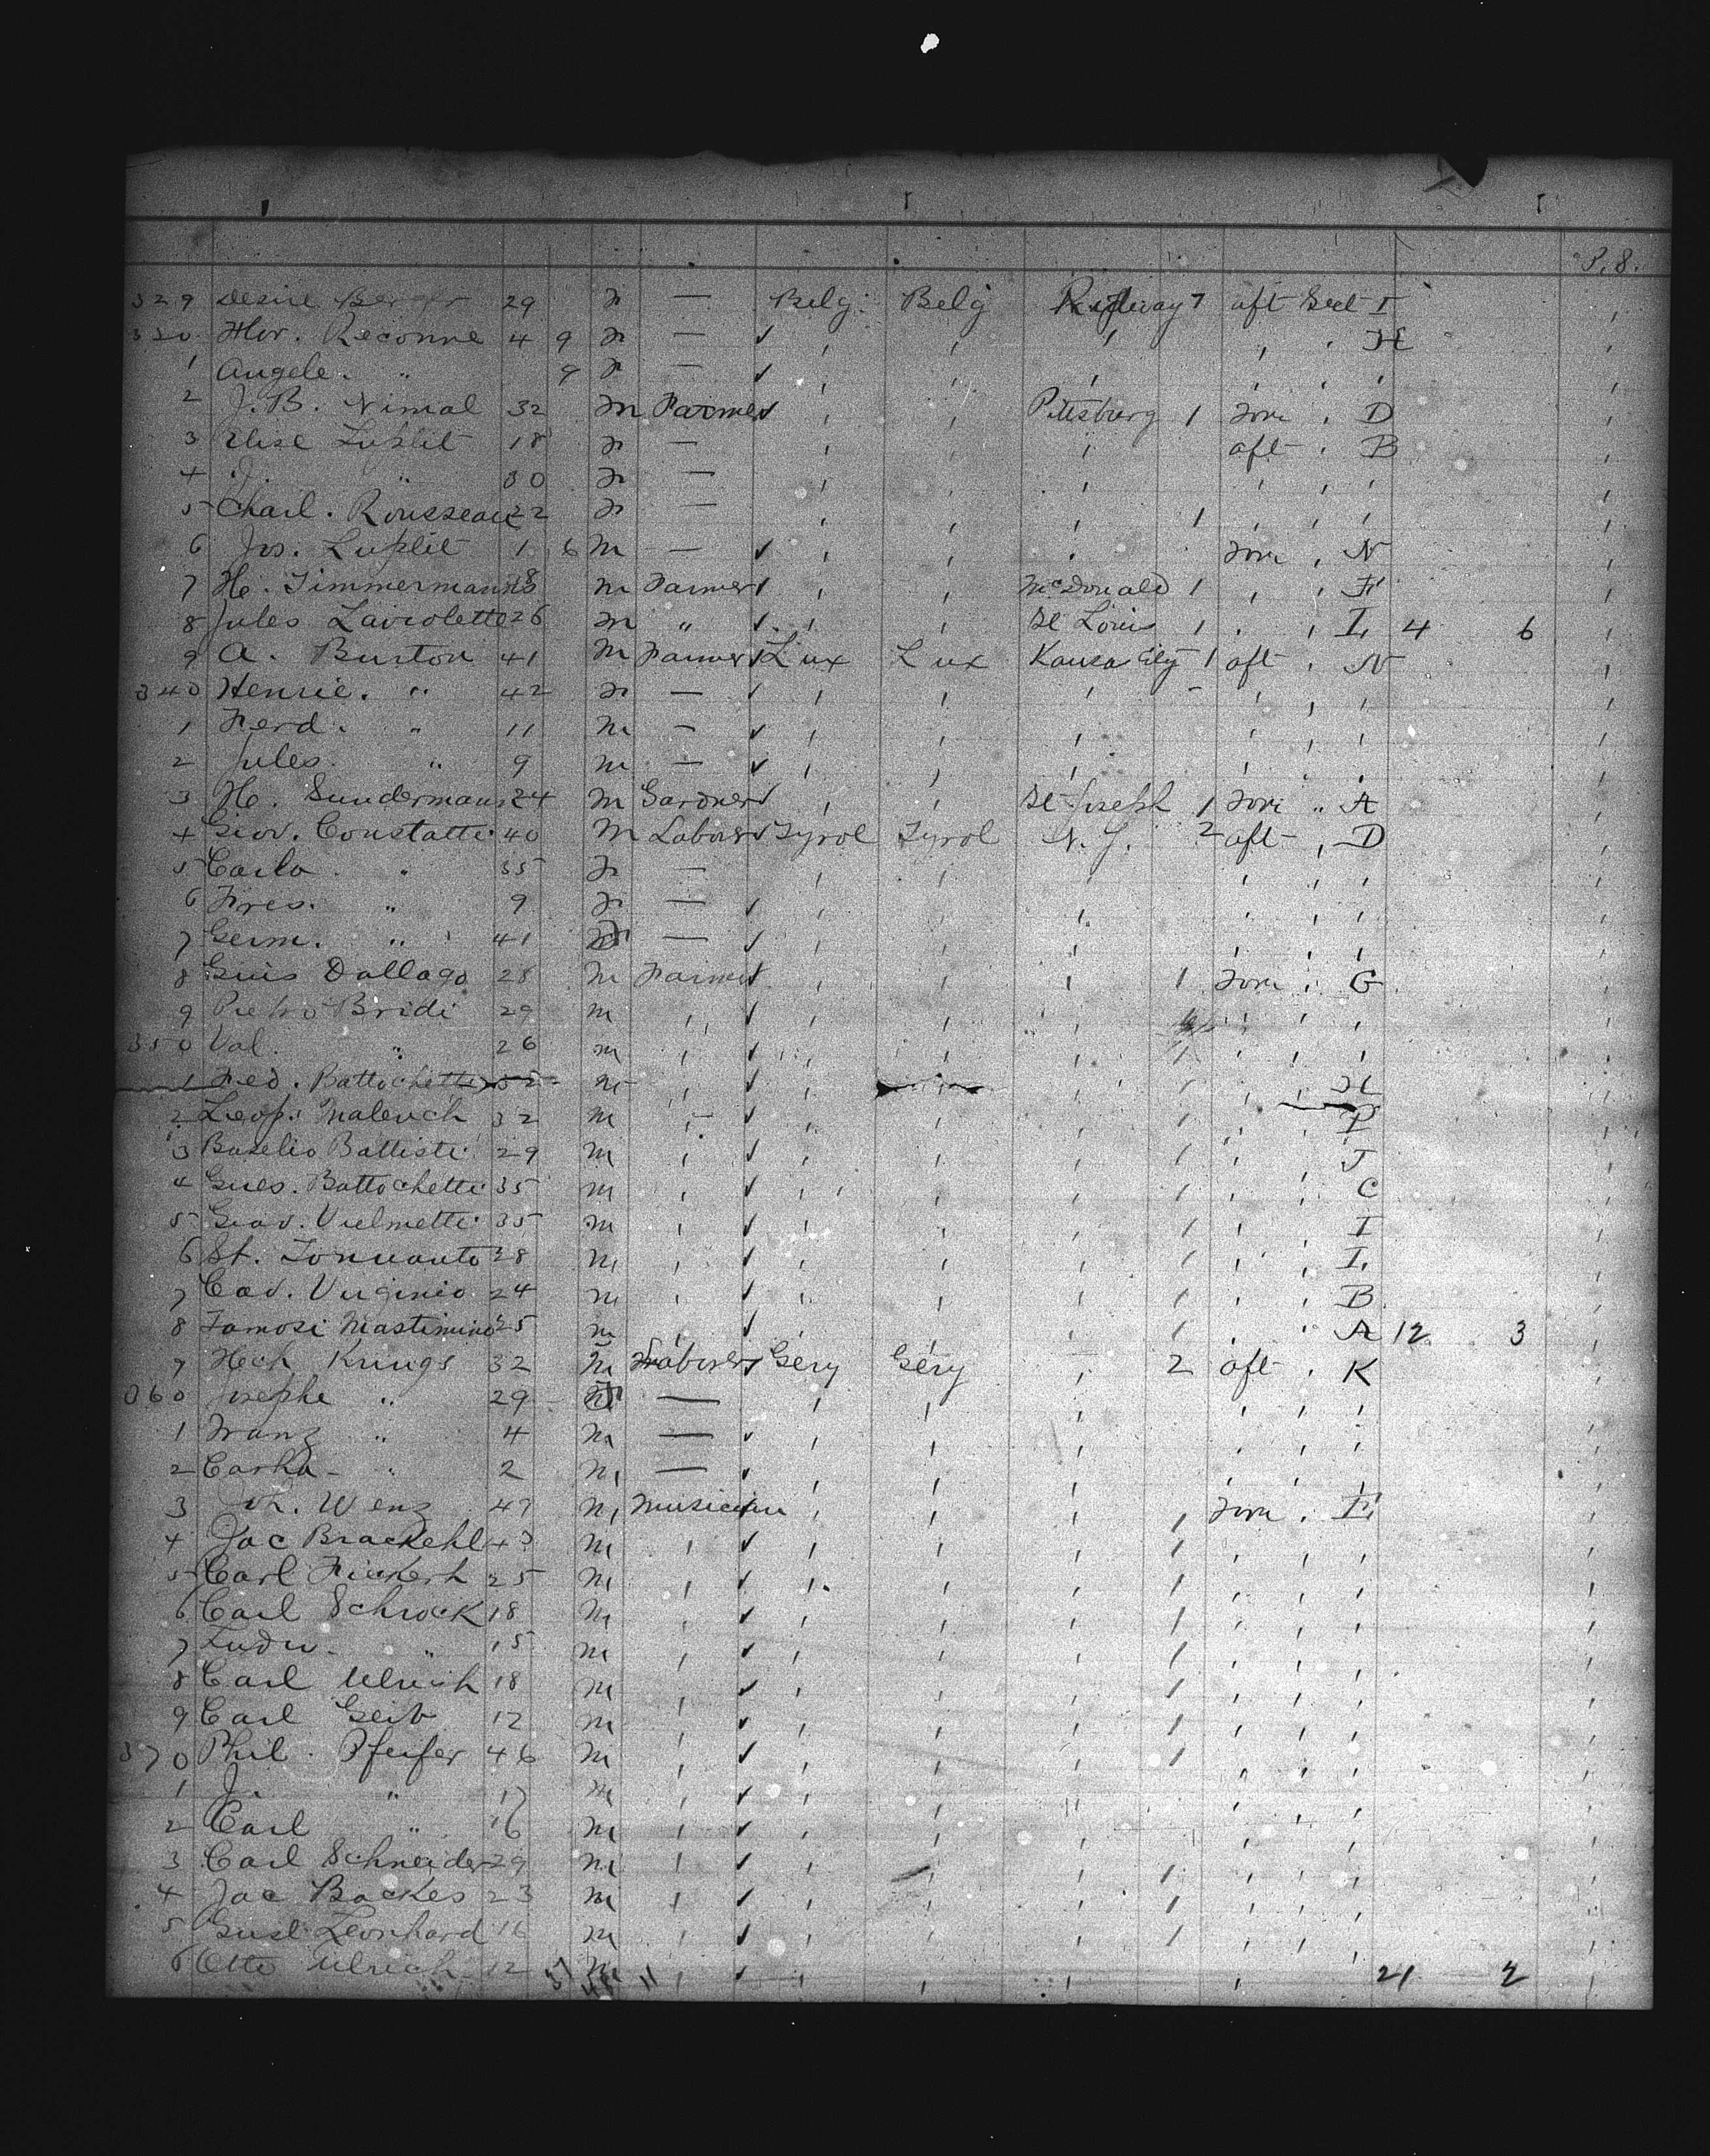 P. 8.
329 Desire Berger 29 F — Belg. Belg Ridgway 7 aft Sect I
330 Flor. Reconne 4 9 F — ✓ " " " " " H
1 Angele. " 9 F — ✓ " " " " " "
2 J. B. Nimal 32 M Farmer ✓ " " Pittsburg 1 Fore " D
3 Elise Luplit 18 F — " " " aft " B
4 J. " 30 F — " " " " " "
5 Charl. Rousseau 22 F — " " " 1 " " "
6 Jos. Luplit 1 6 M — ✓ " " " Fore " N
7 H. Timmermans 18 M Farmer ✓ " " McDonald 1 " " F
8 Jules Laviolette 26 M " ✓ " " St Louis 1 " " I, 4 6
9 A. Burton 41 M Farmer ✓ Lux Lux Kansa City 1 aft " N
340 Henrie. " 42 F — ✓ " " " - " " "
1 Ferd. " 11 M — ✓ " " " " " "
2 Jules. " 9 M — ✓ " " " " " "
3 H. Sundermann 24 M Gardner ✓ " " St Joseph 1 Fore " A
4 Giov. Constatti 40 M Laborer ✓ Tyrol Tyrol N. Y. 2 aft " D
5 Carla " 35 F — " " " " "
6 Fres. " 9 F — ✓ " " " " " "
7 Germ. " 41 F — ✓ " " " " " "
8 Guis Dallago 28 M Farmer ✓ " " " 1 Fore " G
9 Pietro Bridi 29 M " ✓ " " " " " "
350 Val. " 26 M " ✓ " " " 1 " " "
1 Fed. Battochetti 52 M " ✓ " " " 1 " " H
2 Leop. Malench 32 M " ✓ " " " 1 " " P
3 Baselio Battisti 29 M " ✓ " " " 1 " " J
4 Gues. Battochetti 35 M " ✓ " " " 1 " " C
5 Giov. Vielmetti 35 M " ✓ " " " 1 " " I
6 St. Tonuanto 28 M " ✓ " " " 1 " " I,
7 Cav. Virginio 24 M " ✓ " " " 1 " " B
8 Tamosi Mastimino 25 M " ✓ " " " 1 " " A 12 3
9 Hch Krings 32 M Laborer ✓ Gery Gery " 2 aft " K
360 Josephe " 29 F — " " " " " "
1 Franz " 4 M — ✓ " " " " " "
2 " 2 M — ✓ " " " " " "
3 Joh. Wenz 47 M Musician " " " 1 Fore " E
4 Jac Brackehl 43 M " ✓ " " " 1 " " "
5 Carl Fickert 25 M " ✓ " " " 1 " " "
6 Carl Schrock 18 M " ✓ " " " 1 " " "
7 Ludw. " 15 M " ✓ " " " 1 " " "
8 Carl Ulrich 18 M " ✓ " " " 1 " " "
9 Carl Geib 12 M " ✓ " " " 1 " " "
370 Phil. Pfeifer 46 M " ✓ " " " 1 " " "
1 J. " 17 M " ✓ " " " " " "
2 Carl " 16 M " ✓ " " " " " "
3 Carl Schneider 29 M " ✓ " " " 1 " " "
4 Jac Backes 23 M " ✓ " " " 1 " " "
5 Gust Leonhard 16 M " ✓ " " " 1 " " "
6 Otto Ulrich 12 M " ✓ " " " " 21 2
37 11